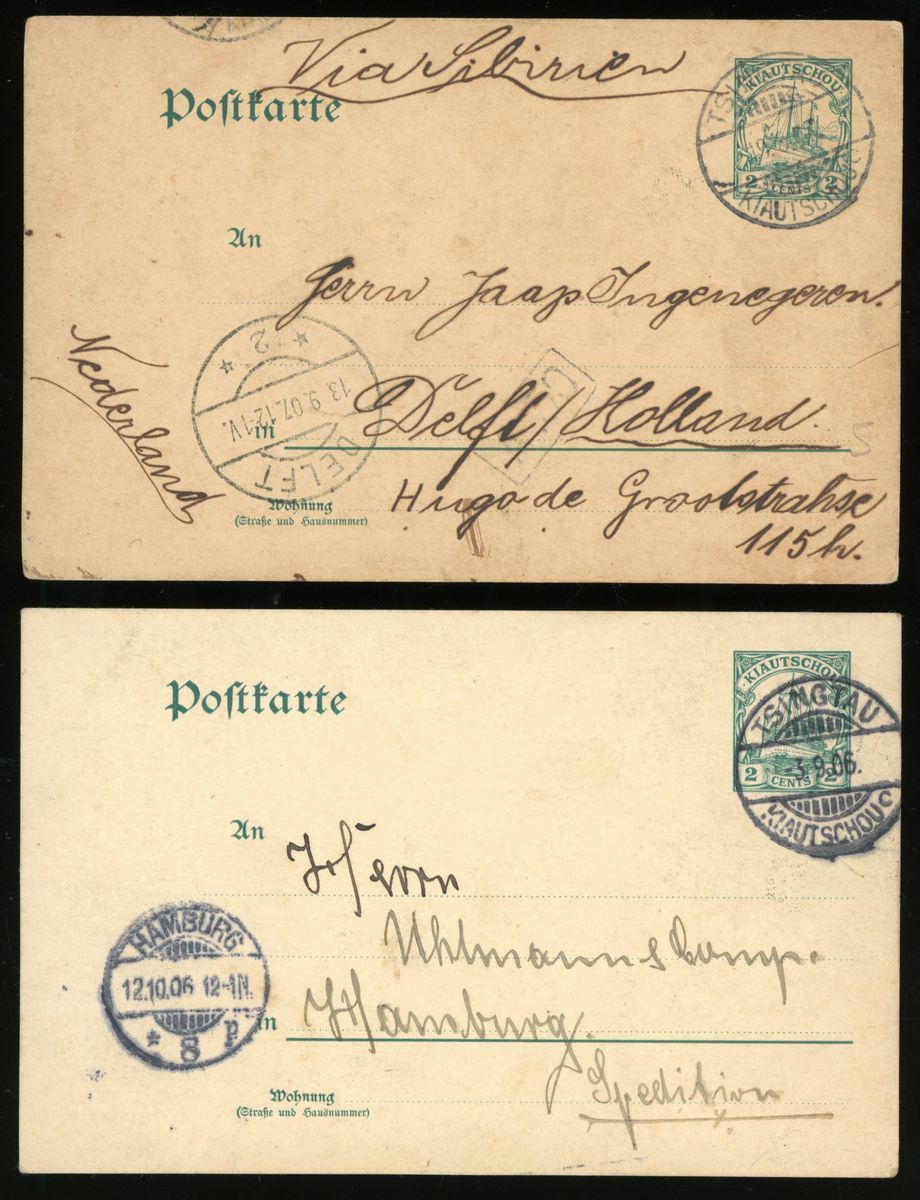 Via Sibirien
Postkarte
KIAUTSCHOU
2 CENTS 2
KIAUTSCHOU
An
Herrn Jaap Ingenegeren.
Nederland
* 2 *
13.9.07.12-1V.
DELFT
in
Delft/Holland.
5
Hugo de Grootstrahse
Wohnung
(Straße und Hausnummer)
115h.
Postkarte
KIAUTSCHOU
2 CENTS 2
TSINGTAU
-3.9.06.
KIAUTSCHOU
An
Herrn
Uhlmann & Comp.
HAMBURG
12.10.06 12-1N.
* 8 P
in
Hamburg.
Wohnung
(Straße und Hausnummer)
Spedition